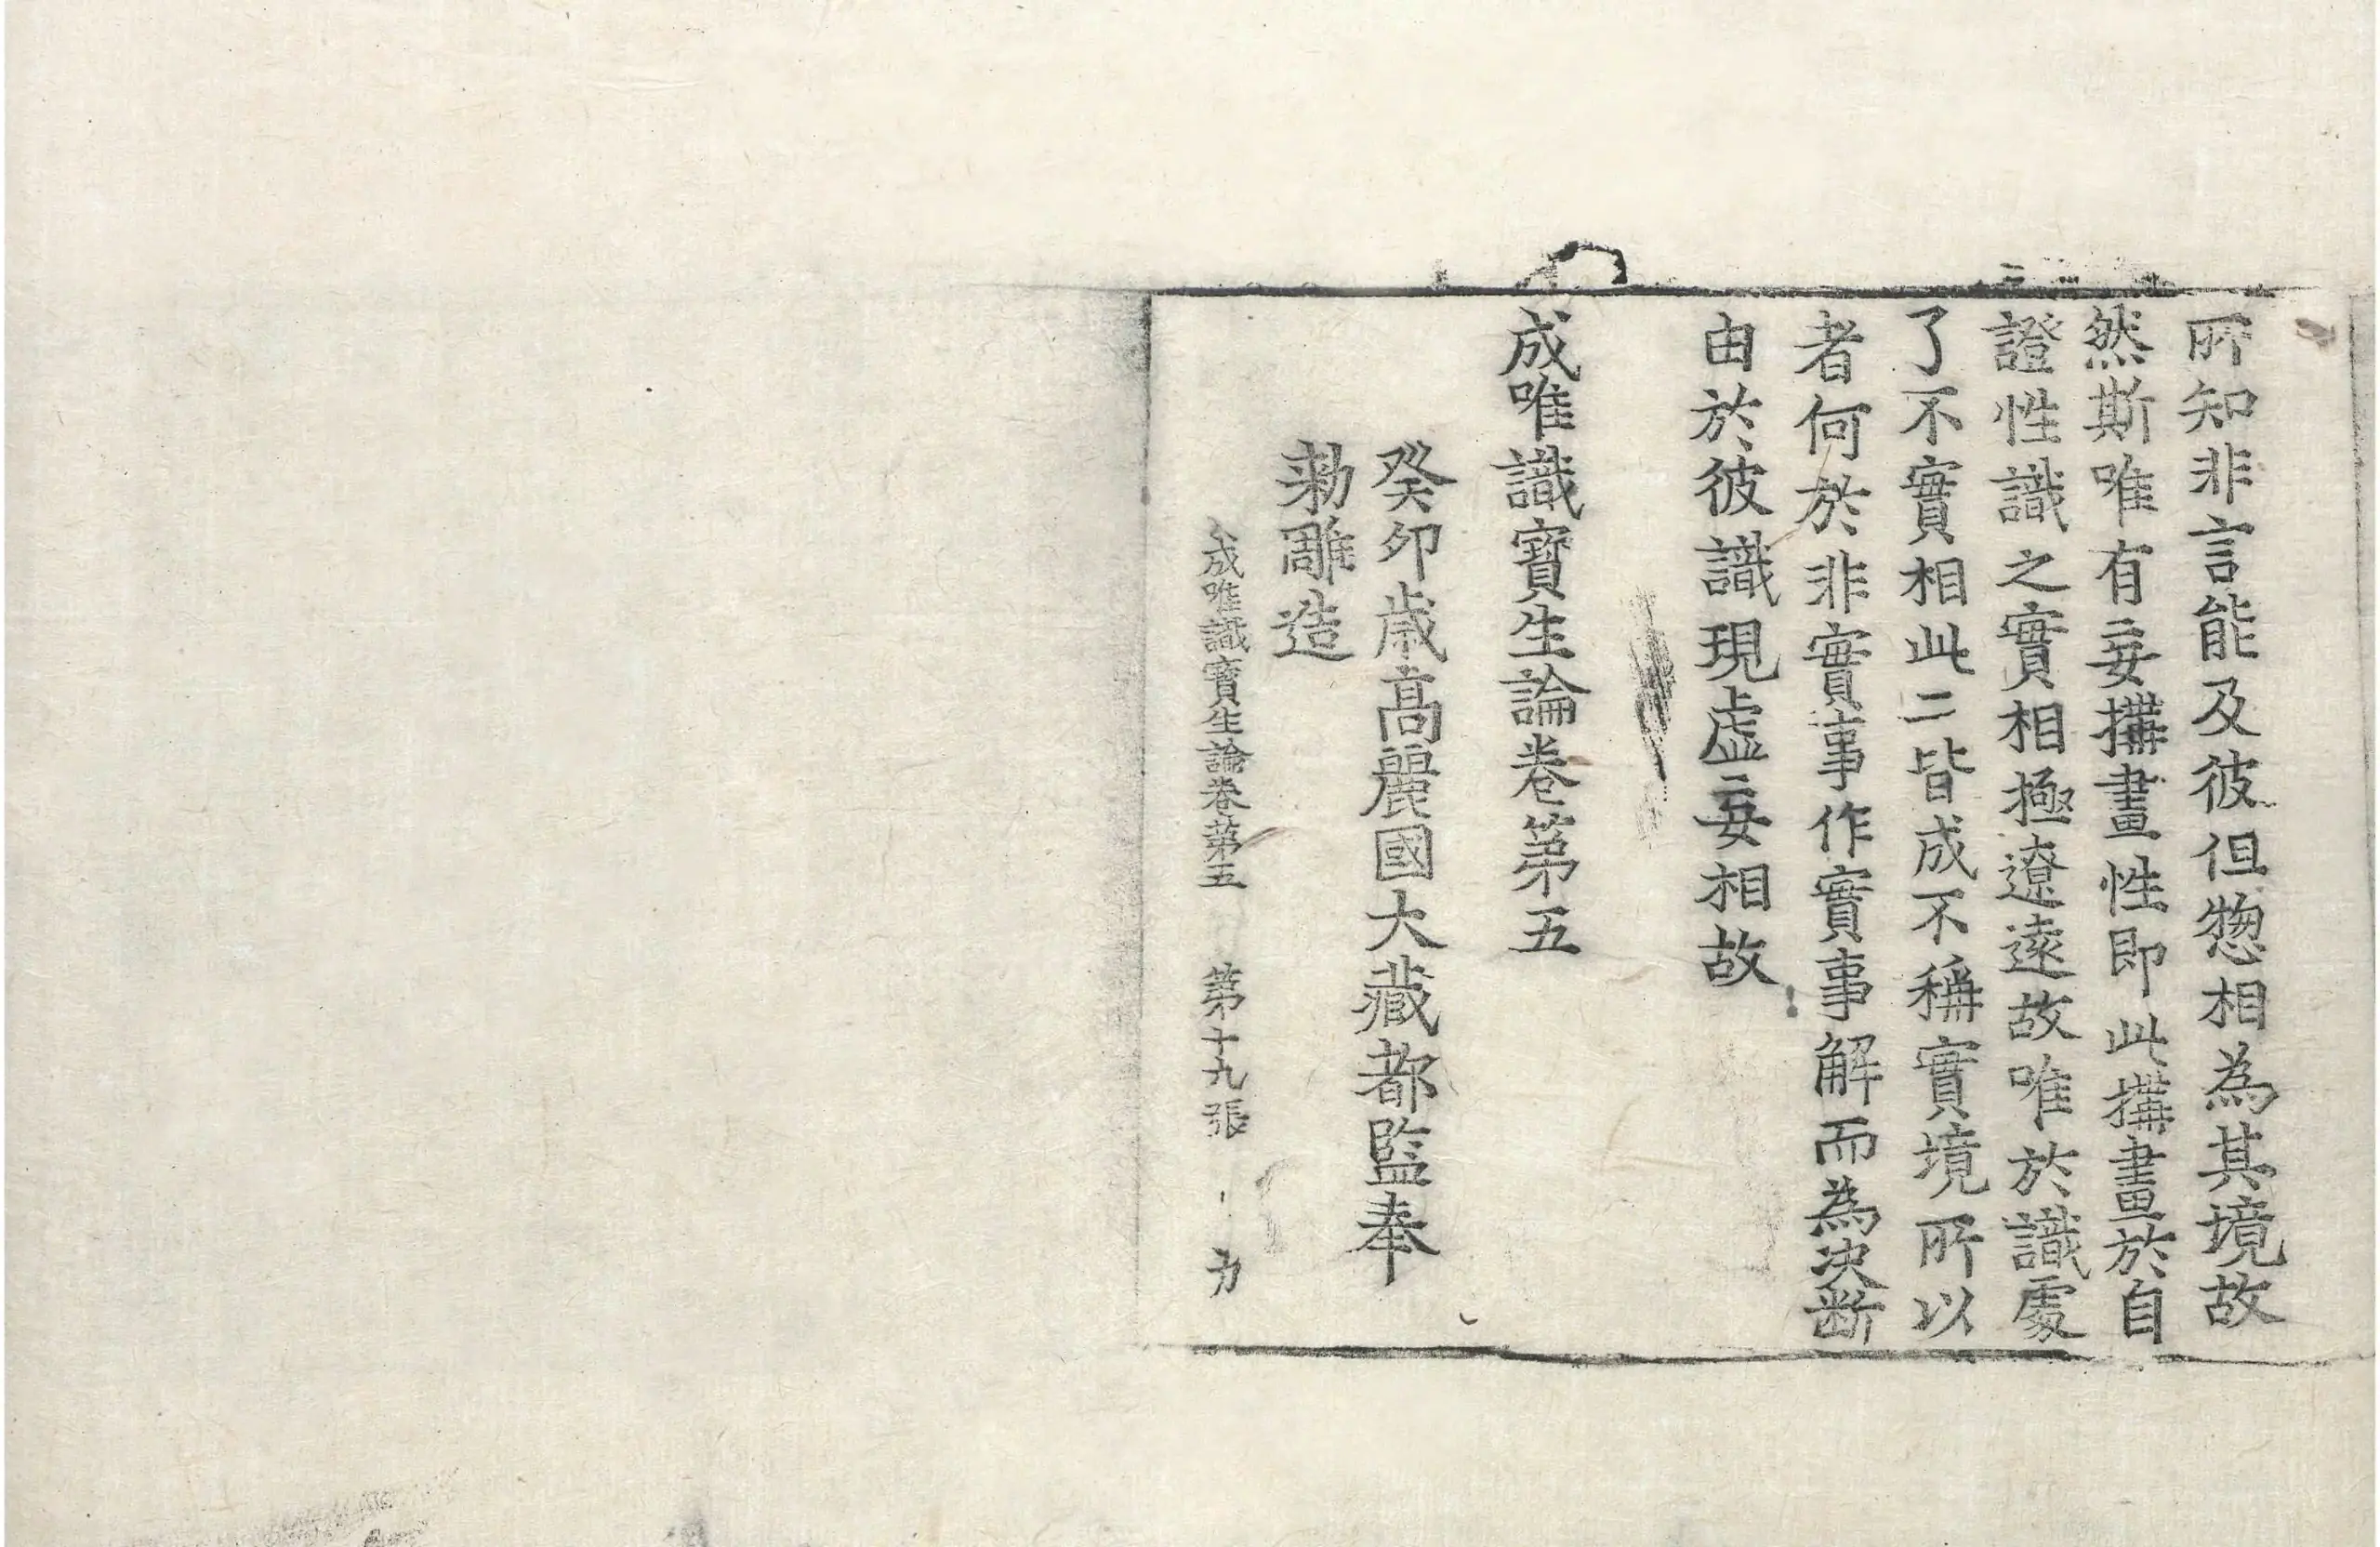 所知非言能及彼但惣相為其境故
然斯唯有妄搆畫性即此搆畫於自
證性識之實相極遼遠故唯於識處
了不實相此二皆成不稱實境所以
者何於非實事作實事解而為决断
由於彼識現虛妄相故
成唯識寶生論卷第五
癸卯歲高麗國大藏都監奉
勑雕造
成唯識寶生論卷第五 第十九張 力